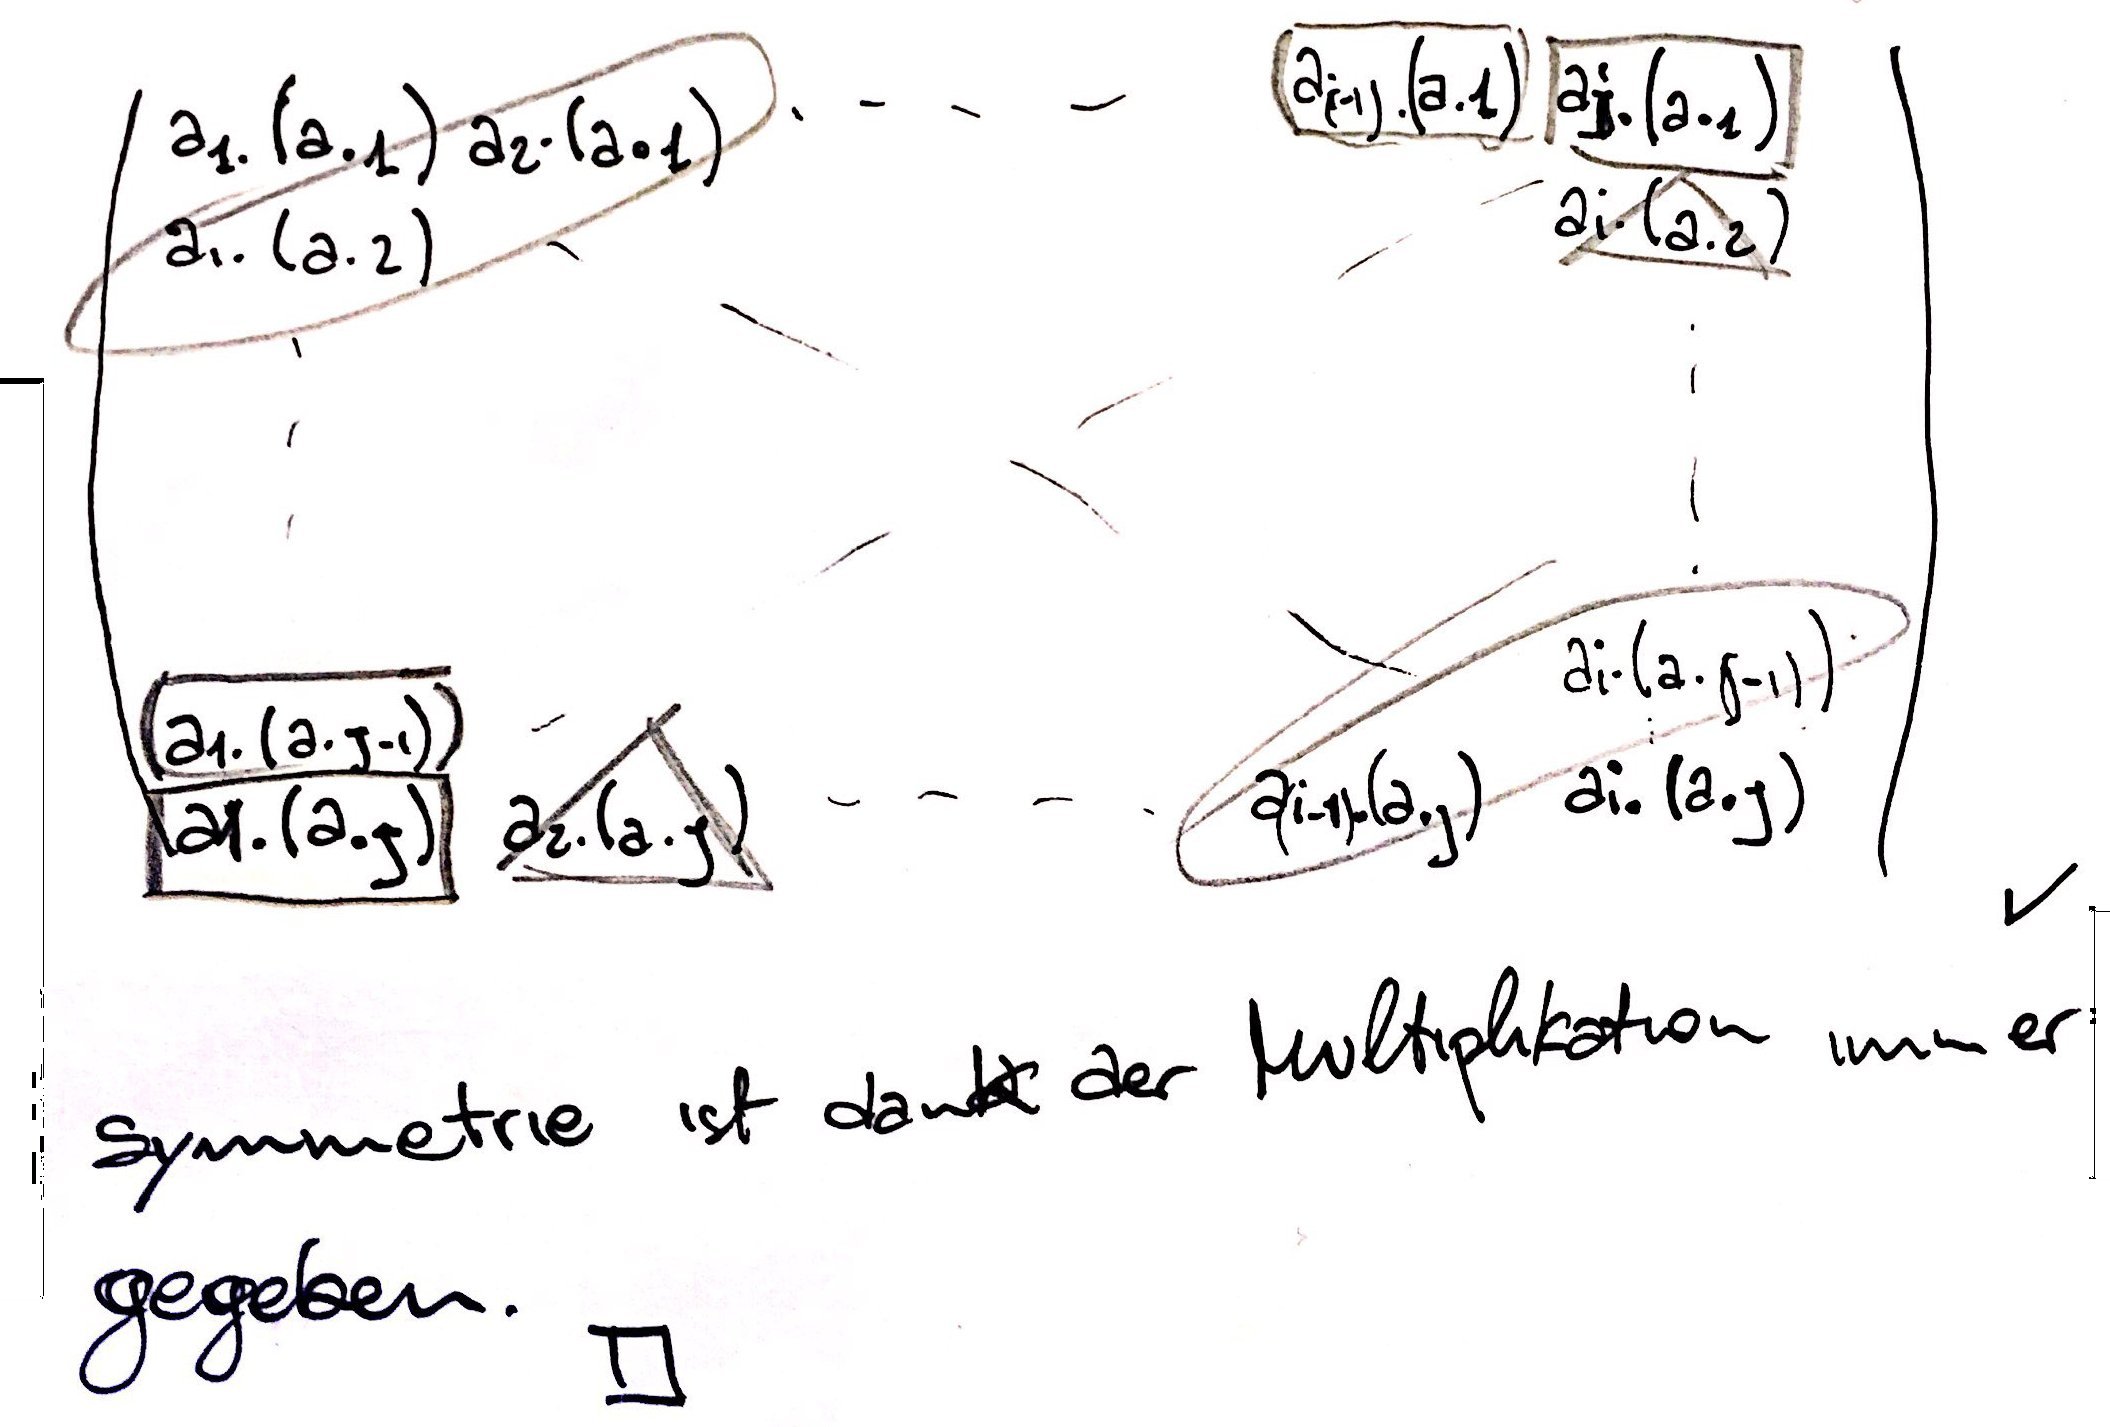 a₁.(a.1) a₂.(a.1) . - - - a(i-1).(a.1) ai.(a.1)
a₁.(a.2) ai.(a.2)
a₁.(a.j-1) ai.(a.j-1)
a₁.(a.j) a₂.(a.j) - - - - a(i-1).(a.j) ai.(a.j)
✓
Symmetrie ist dank der Multiplikation immer
gegeben. □